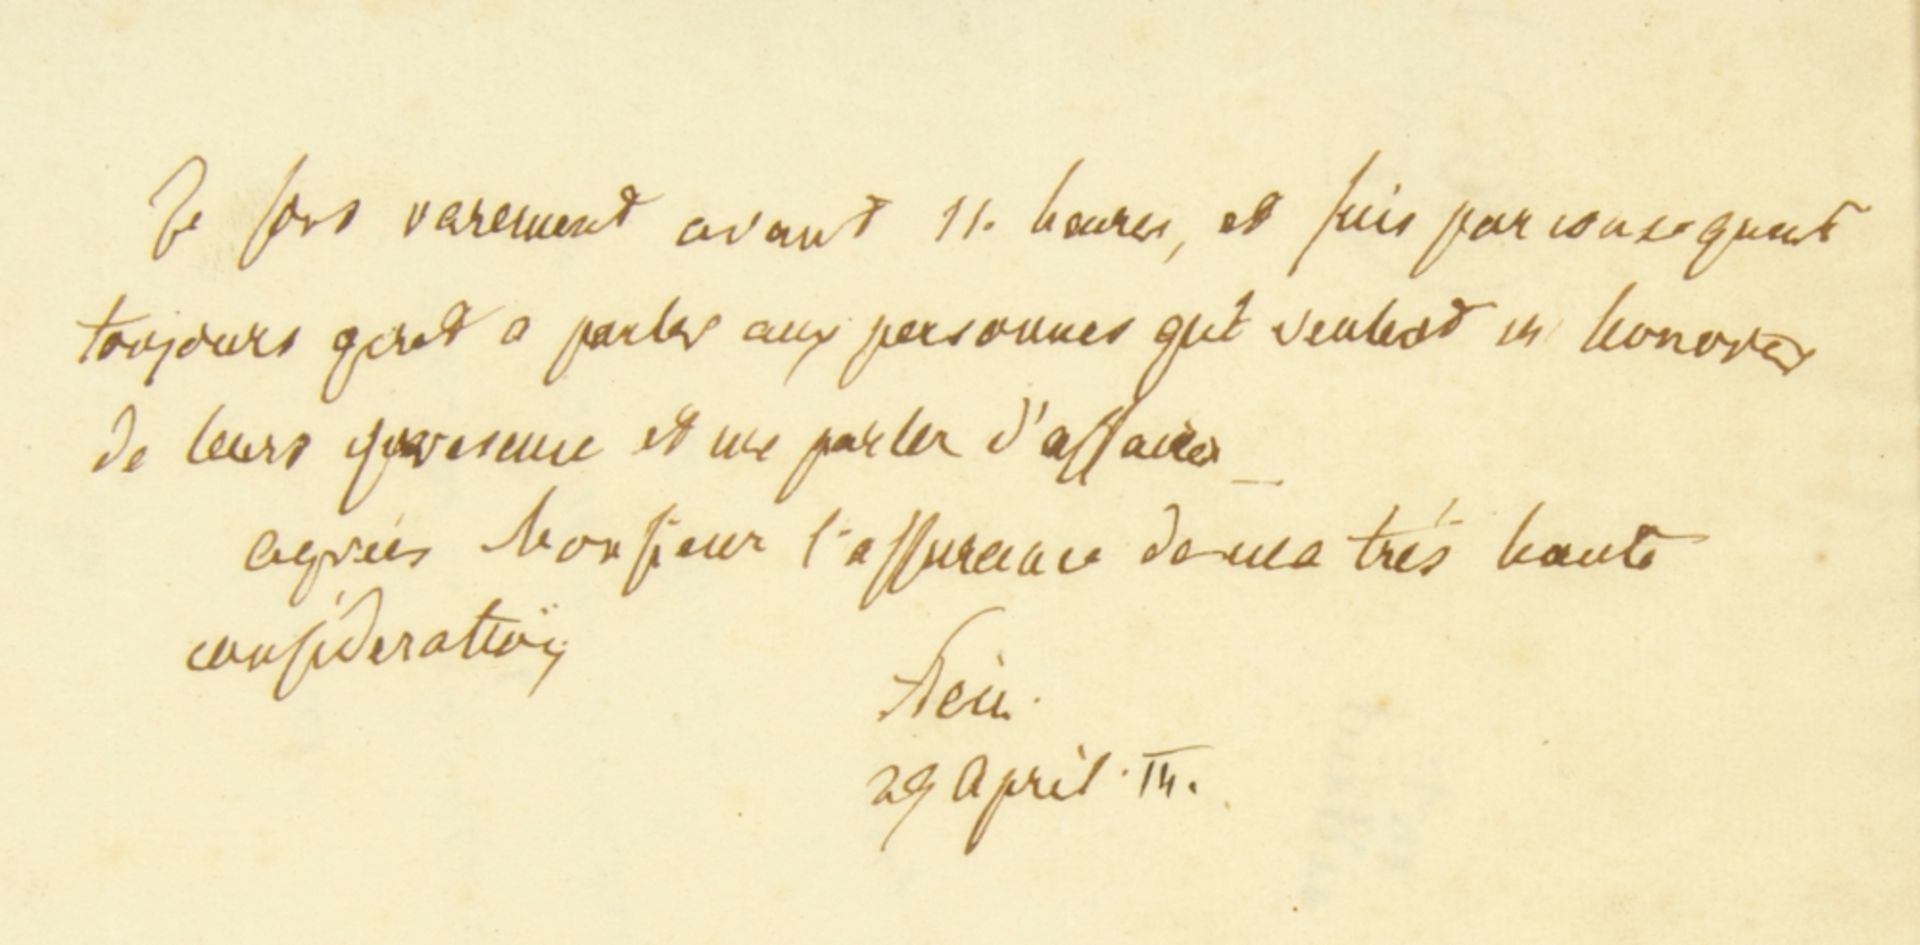 Je sors rarement avant 11. heures, et suis par consequent
toujours pret a parler aux personnes qui veulent m honorer
de leurs presence et me parler d'affaires _
agrées Monsieur l'assurance de ma trés haute
consideration
29 April